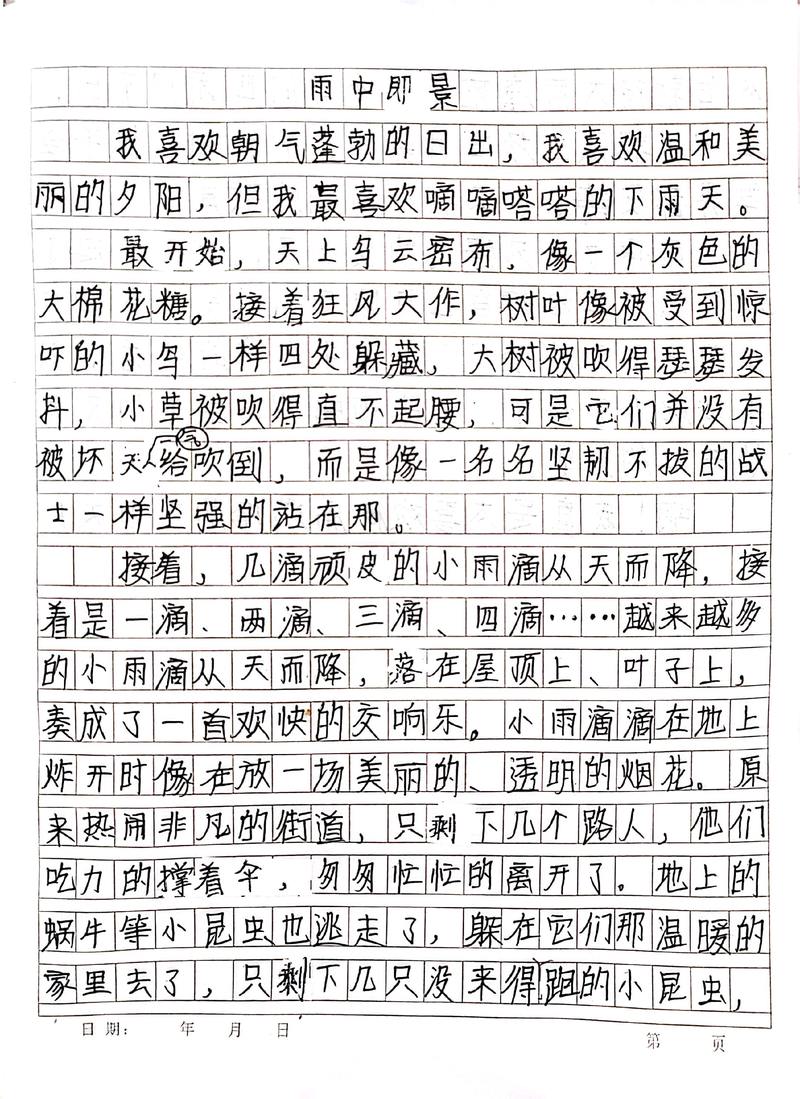 雨中即景
我喜欢朝气蓬勃的日出，我喜欢温和美
丽的夕阳，但我最喜欢嘀嘀嗒嗒的下雨天。
最开始，天上乌云密布，像一个灰色的
大棉花糖。接着狂风大作，树叶像被受到惊
吓的小鸟一样四处躲藏，大树被吹得瑟瑟发
抖，小草被吹得直不起腰，可是它们并没有
被坏天气给吹倒，而是像一名名坚韧不拔的战
士一样坚强的站在那。
接着，几滴顽皮的小雨滴从天而降，接
着是一滴、两滴、三滴、四滴……越来越多
的小雨滴从天而降，落在屋顶上、叶子上，
奏成了一首欢快的交响乐。小雨滴滴在地上
炸开时像在放一场美丽的、透明的烟花。原
来热闹非凡的街道，只剩下几个路人，他们
吃力的撑着伞，匆匆忙忙的离开了。地上的
蜗牛等小昆虫也逃走了，躲在它们那温暖的
家里去了，只剩下几只没来得跑的小昆虫，
日期： 年 月 日
第 页